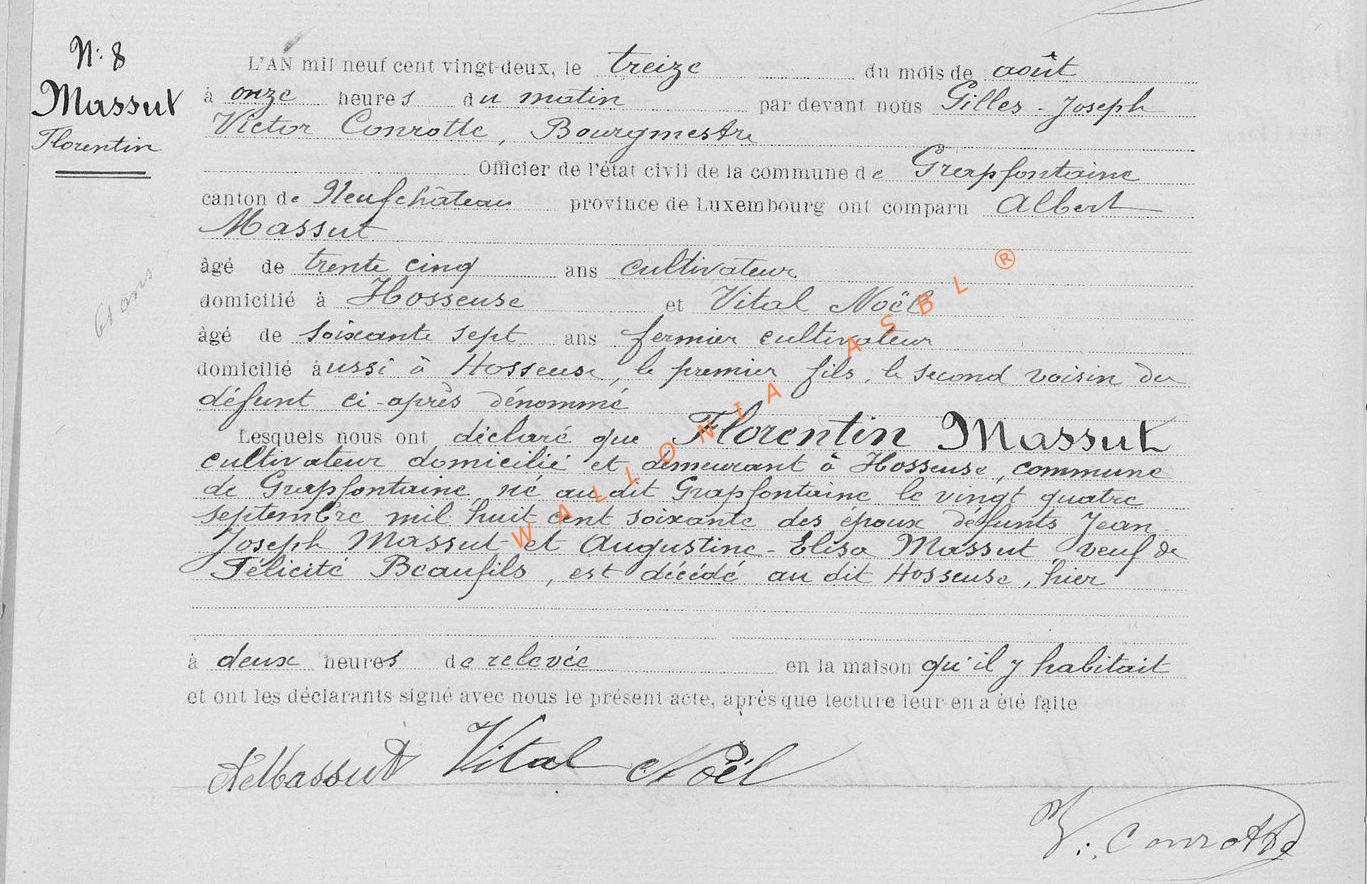 N: 8
Massut
Florentin
61 ans
L'AN mil neuf cent vingt-deux, le treize du mois de août
à onze heures du matin par devant nous Gilles-Joseph
Victor Conrotte, Bourgmestre
Officier de l'état civil de la commune de Grapfontaine
canton de Neufchâteau province de Luxembourg ont comparu Albert
Massut
âgé de trente cinq ans cultivateur
domicilié à Hosseuse et Vital Noël
âgé de soixante sept ans fermier cultivateur
domicilié aussi à Hosseuse, le premier fils, le second voisin du
défunt ci-après dénommé
Lesquels nous ont déclaré que Florentin Massut
cultivateur domicilié et demeurant à Hosseuse, commune
de Grapfontaine, né au dit Grapfontaine le vingt quatre
septembre mil huit cent soixante des époux défunts Jean-
Joseph Massut et Augustine-Elisa Massut veuf de
Félicité Beaufils, est décédé au dit Hosseuse, hier
à deux heures de relevée en la maison qu'il y habitait
et ont les déclarants signé avec nous le présent acte, après que lecture leur en a été faite
A Massut Vital Noël
V. Conrotte
WALLONIA ASBL ®